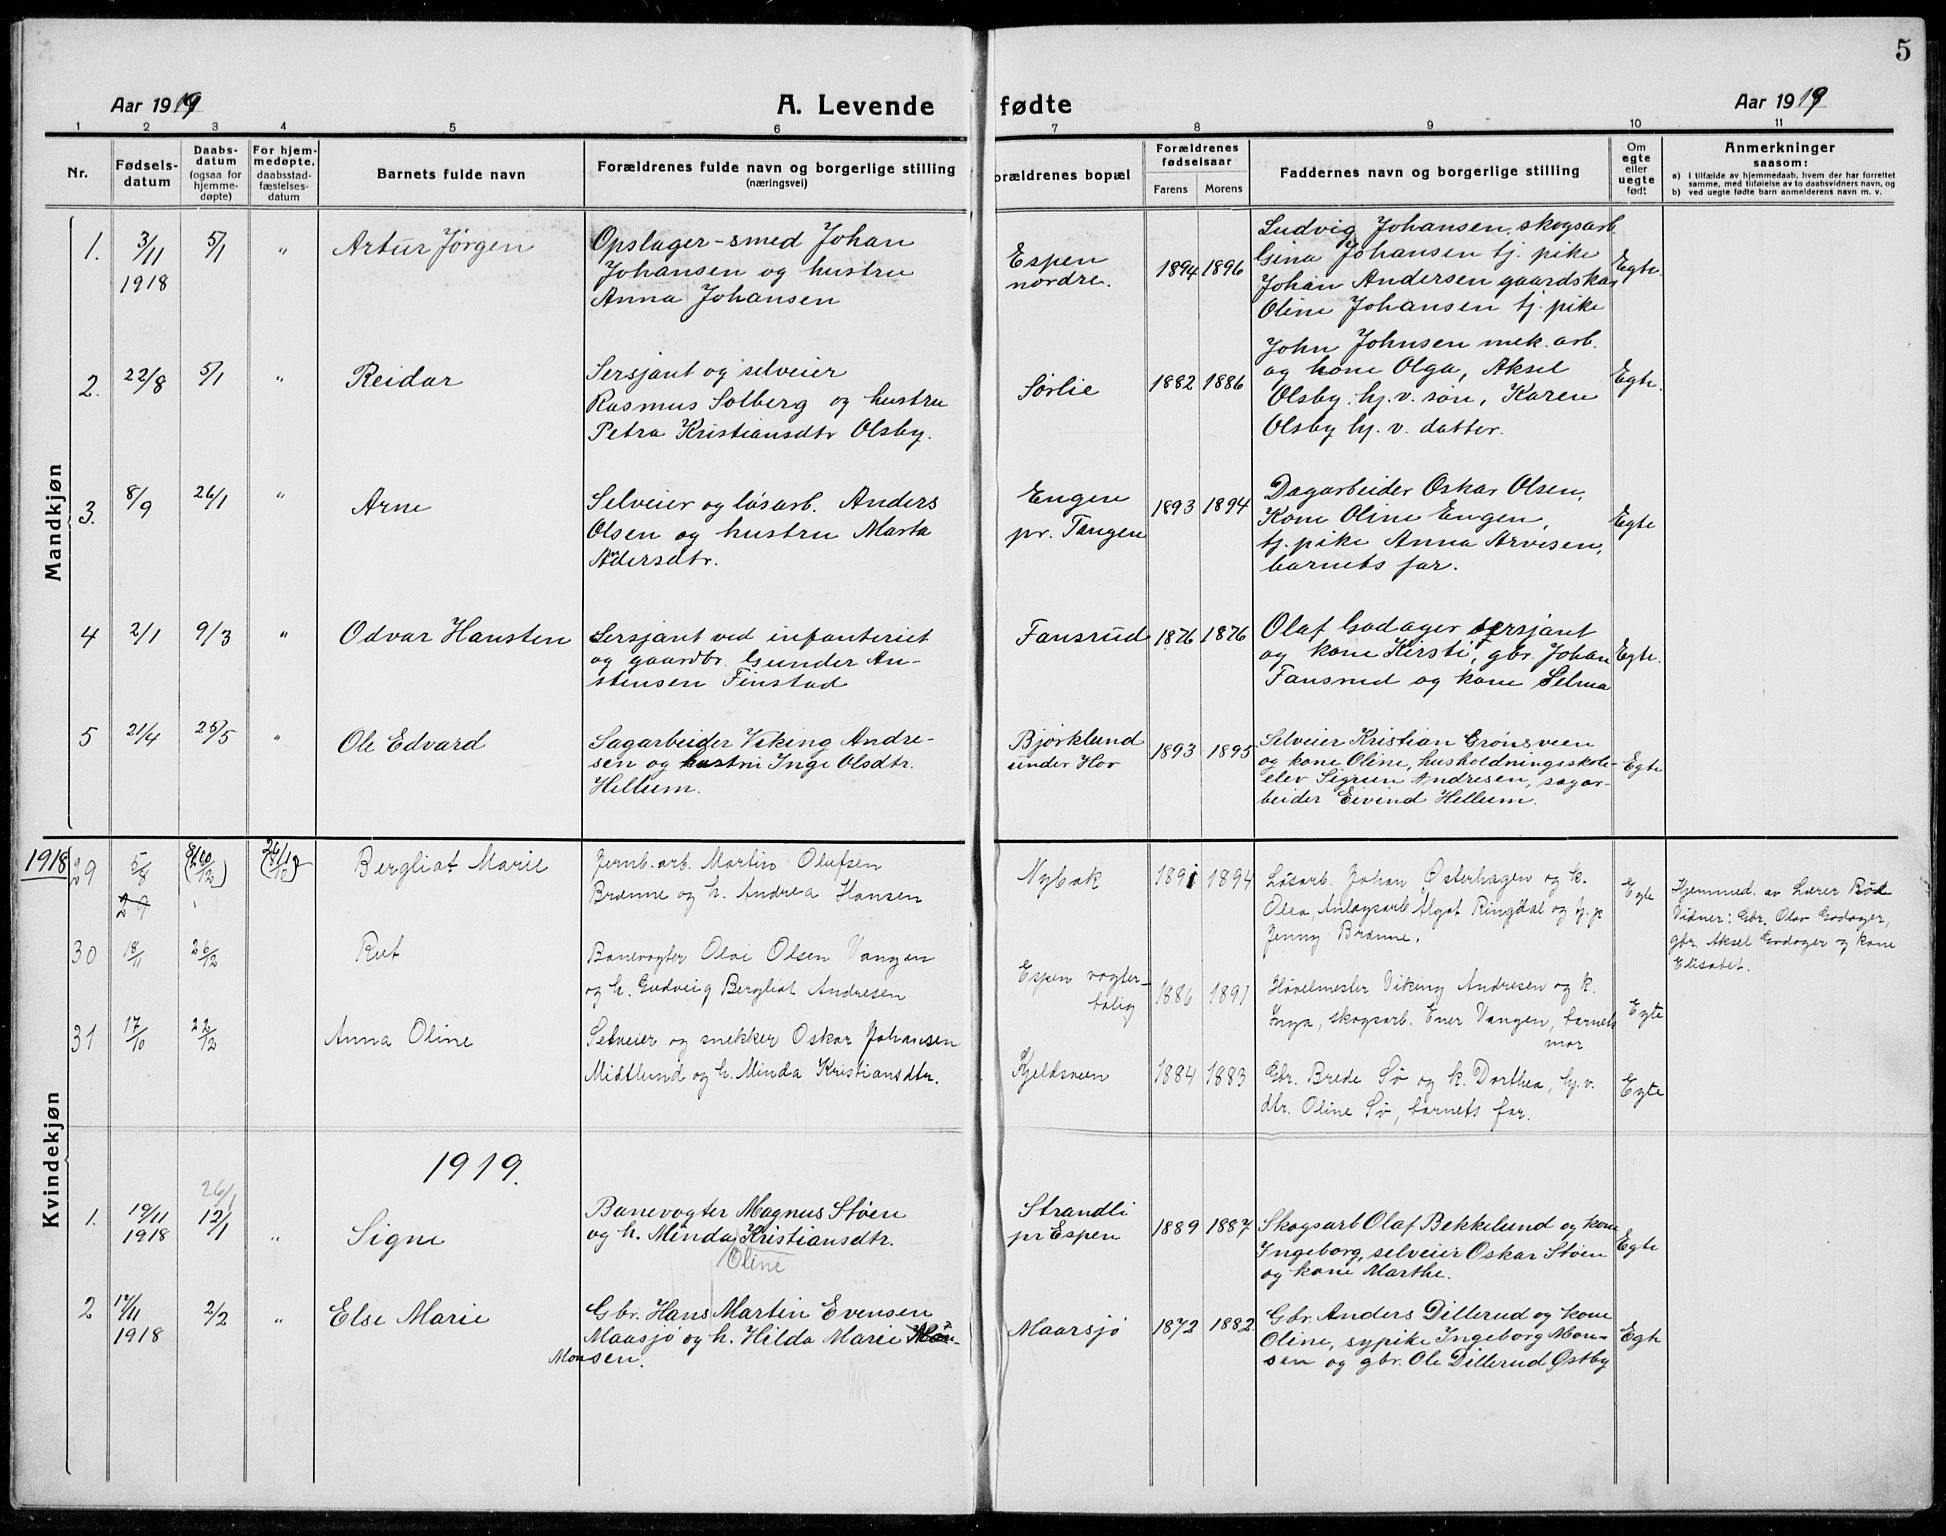 5
Aar 1919 A. Levende fødte Aar 1919
1 2 3 4 5 6 7 8 9 10 11
Nr.
Fødsels-
datum
Daabs-
datum
(ogsaa for
hjemme-
døpte)
For hjem-
medøpte,
daabsstad-
fæstelses-
datum
Barnets fulde navn
Forældrenes fulde navn og borgerlige stilling
(næringsvei)
orældrenes bopæl
Forældrenes
fødselsaar
Farens Morens
Faddernes navn og borgerlige stilling
Om
egte
eller
uegte
født
Anmerkninger
saasom:
a) i tilfælde av hjemmedaab, hvem der har forrettet
samme, med tilføielse av to daabsvidners navn, og
b) ved uegte fødte barn anmelderens navn m. v.
Mandkjøn
1. 3/11 1918 5/1 " Artur Jørgen
Opslager-smed Johan
Johansen og hustru
Anna Johansen
Espen
nordre.
1894 1896
Ludvig Johansen, skogsarb
Gina Johansen tj. pike
Johan Andersen gaardskar
Oline Johansen tj. pike
Egte.
2. 22/8 5/1 " Reidar
Sersjant og selveier
Rasmus Solberg og hustru
Petra Kristiansdtr Olsby.
Sørlie
1882 1886
John Johnsen mek. arb.
og kone Olga, Aksel
Olsby. hj. v. søn, Karen
Olsby hj. v. datter.
Egte.
3. 8/9 26/1 " Arne
Selveier og løsarb. Anders
Olsen og hustru Marta
Andersdtr.
Engen
pr. Tangen
1893 1894
Dagarbeider Oskar Olsen,
Kone Oline Engen,
tj. pike Anna Arvesen,
barnets far.
Egte
4 2/1 9/3 " Odvar Hansten
Sersjant ved infanteriet
og gaardbr. Gunder An-
stensen Finstad
Fansrud
1876 1876
Olaf Godager sersjant
og kone Kirsti, gbr. Johan
Fansrud og kone Selma
Egte.
5 21/4 25/5 " Ole Edvard
Sagarbeider Viking Andre-
sen og hustru Inge Olsdtr.
Hellum.
Bjørklund
under Hov
1893 1895
Selveier Kristian Grønsveen
og kone Oline, husholdningsskole-
elev Sigrun Andresen, sagar-
beider Eivind Hellum.
Egte
Kvindekjøn
1918
29 5/8 Bergliat Marie
29
Jernb. arb. Martin Olufsen
Brænne og h. Andrea Hansen
Nybak
1891 1894
Løsarb. Johan Østerhagen og k.
Olea, Anlagsarb Algot Ringdal og tj. p
Jenny Brænne.
Egte
Hjemmed. av Lærer
Vidner: Gbr. Olav Godager,
gbr. Aksel Godager og kone
Elisabet.
30 18/11 26/12 Rut
Banevogter Olai Olsen Vangen
og h. Gudveig Bergliat Andresen
Espen vogter-
bolig
1886 1891
Høvelmester Viking Andresen og k.
Inga, skogsarb. Ener Vangen, barnets
mor
Egte
31 17/10 22/12 Anna Oline
Selveier og snekker Oskar Johansen
Midtlund og h. Minda Kristiansdtr.
Kjeldsveen
1884 1883
Gbr. Brede Sø og k. Dorthea, hj. v.
dtr. Oline Sø, barnets far.
Egte
1919.
26/1
1. 19/11 1918 12/1 " Signe
Banevogter Magnus Støen
og h. Minda Kristiansdtr.
Oline
Strandli
pr Espen
1889 1887
Skogsarb Olaf Bekkelund og kone
Ingeborg, selveier Oskar Støen
og kone Marthe.
Egte
2 17/11 1918 2/2 " Else Marie
Gbr. Hans Martin Evensen
Maasjø og h. Hilda Marie
Monsen.
Maarsjø
1872 1882.
Gbr. Anders Dillerud og kone
Oline, sypike Ingeborg Mon-
sen og gbr. Ole Dillerud Østby
Egte